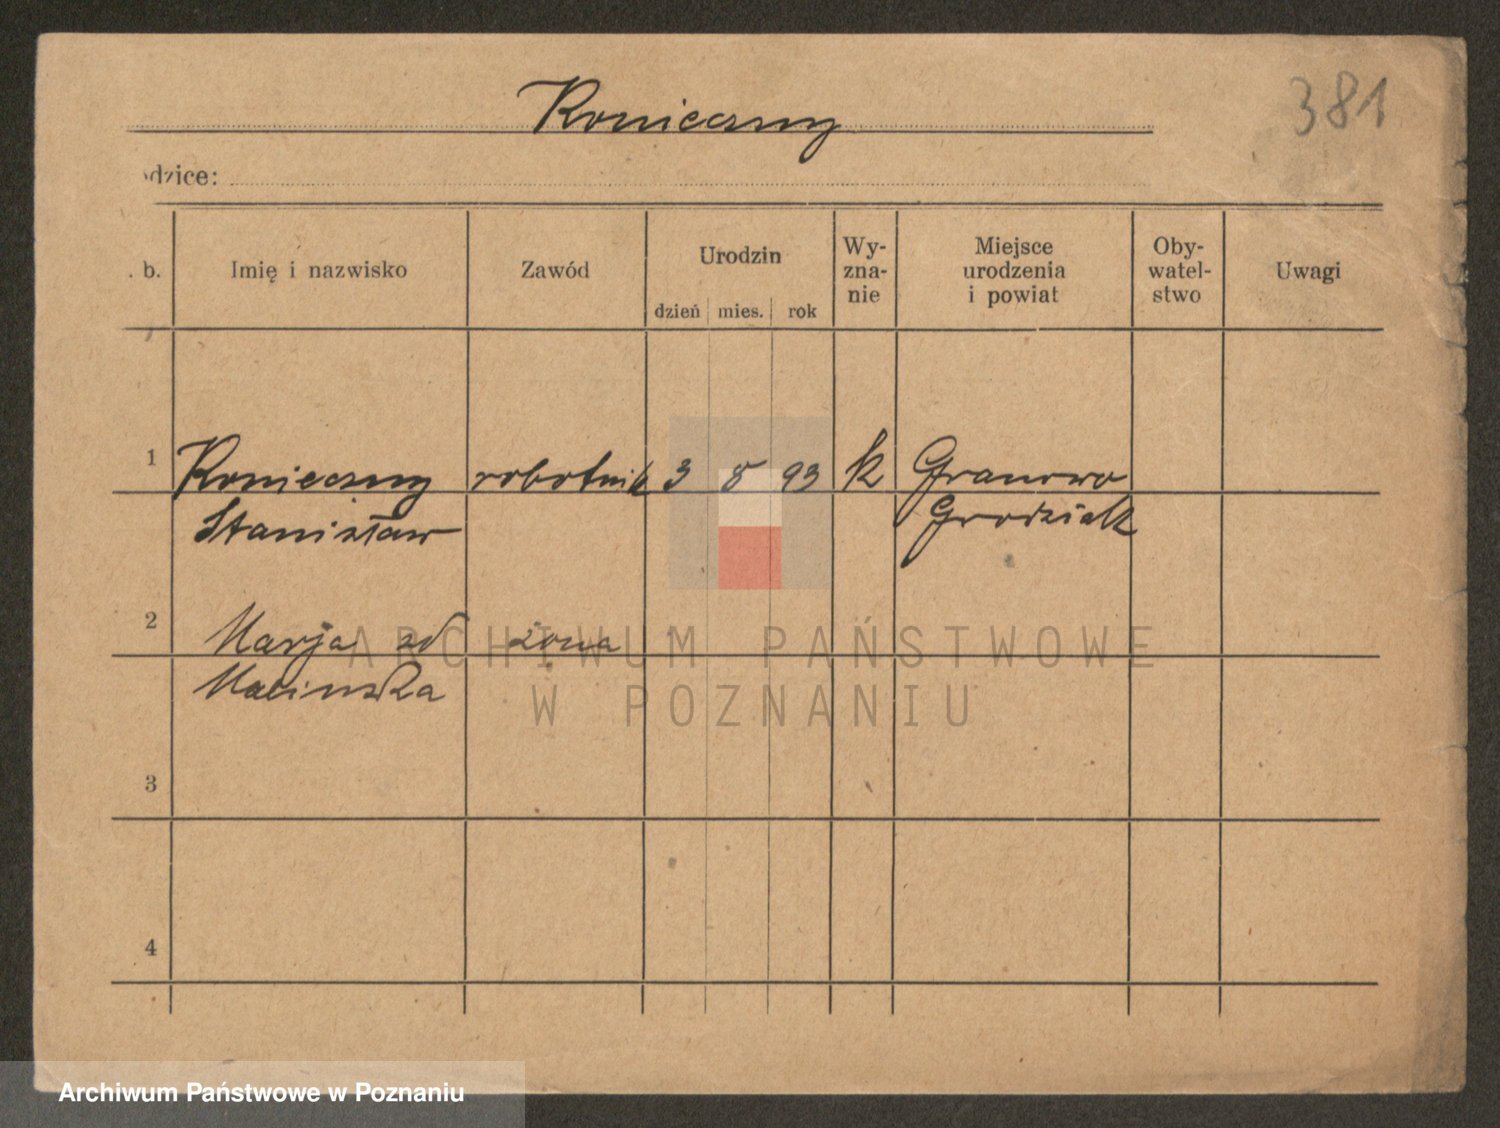 Konieczny
381
dzice:
. b.
Imię i nazwisko
Zawód
Urodzin
dzień mies. rok
Wy-
zna-
nie
Miejsce
urodzenia
i powiat
Oby-
watel-
stwo
Uwagi
1 Konieczny robotnik 3 8 93 k Granowo
Stanisław Grodzisk
2 Marja zd żona
3
4
ARCHIWUM PAŃSTWOWE
W POZNANIU
Archiwum Państwowe w Poznaniu